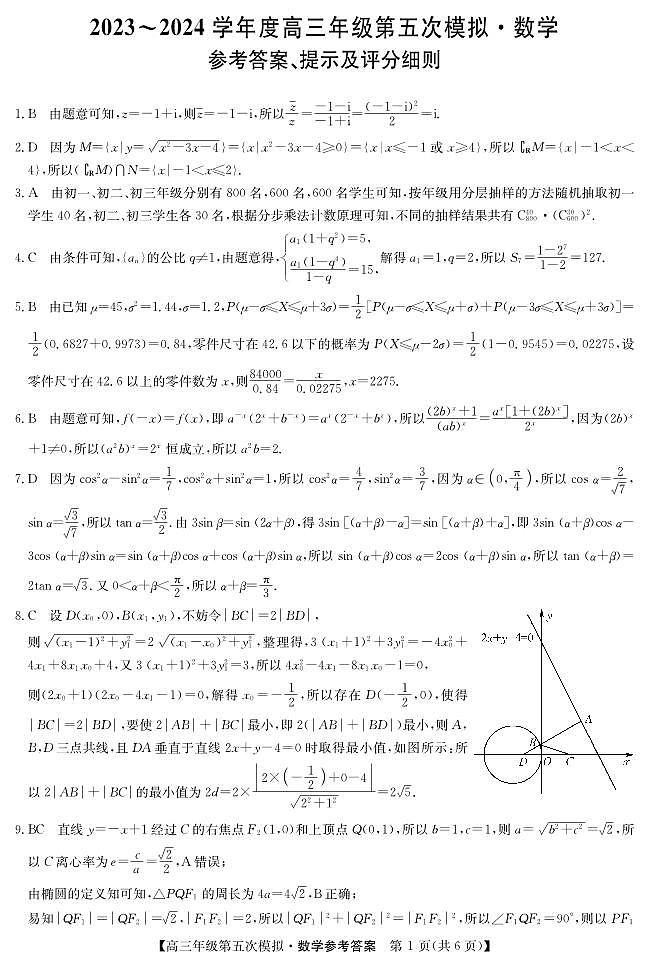 2023～2024 学年度高三年级第五次模拟·数学
参考答案、提示及评分细则
1. B 由题意可知,z=-1+i,则z̅=-1-i,所以 z̅/z=(-1-i)/(-1+i)=(-1-i)²/2=i.
2. D 因为 M={x|y=√(x²-3x-4)}={x|x²-3x-4≥0}={x|x≤-1 或 x≥4},所以 ∁ᵣM={x|-1<x<
4},所以(∁ᵣM)∩N={x|-1<x≤2}.
3. A 由初一、初二、初三年级分别有 800 名,600 名,600 名学生可知,按年级用分层抽样的方法随机抽取初一
学生 40 名,初二、初三学生各 30 名,根据分步乘法计数原理可知,不同的抽样结果共有 C₈₀₀⁴⁰·(C₆₀₀³⁰)².
4. C 由条件可知,{aₙ}的公比 q≠1,由题意得,{a₁(1+q²)=5, a₁(1-q⁴)/(1-q)=15, 解得 a₁=1,q=2,所以 S₇=(1-2⁷)/(1-2)=127.
5. B 由已知 μ=45,σ²=1.44,σ=1.2,P(μ-σ≤X≤μ+3σ)=1/2[P(μ-σ≤X≤μ+σ)+P(μ-3σ≤X≤μ+3σ)]=
1/2(0.6827+0.9973)=0.84,零件尺寸在 42.6 以下的概率为 P(X≤μ-2σ)=1/2(1-0.9545)=0.02275,设
零件尺寸在 42.6 以上的零件数为 x,则84000/0.84=x/0.02275,x=2275.
6. B 由题意可知,f(-x)=f(x),即 a⁻ˣ(2ˣ+b⁻ˣ)=aˣ(2⁻ˣ+bˣ),所以((2b)ˣ+1)/(ab)ˣ=aˣ[1+(2b)ˣ]/2ˣ,因为(2b)ˣ
+1≠0,所以(a²b)ˣ=2ˣ 恒成立,所以 a²b=2.
7. D 因为 cos²α-sin²α=1/7,cos²α+sin²α=1,所以 cos²α=4/7,sin²α=3/7,因为 α∈(0,π/4),所以 cos α=2/√7,
sin α=√3/√7,所以 tan α=√3/2.由 3sin β=sin (2α+β),得 3sin [(α+β)-α]=sin [(α+β)+α],即 3sin (α+β)cos α-
3cos (α+β)sin α=sin (α+β)cos α+cos (α+β)sin α,所以 sin (α+β)cos α=2cos (α+β)sin α,所以 tan (α+β)=
2tan α=√3.又 0<α+β<π/2,所以 α+β=π/3.
8. C 设 D(x₀,0),B(x₁,y₁),不妨令|BC|=2|BD|,
则 √((x₁-1)²+y₁²)=2 √((x₁-x₀)²+y₁²),整理得,3 (x₁+1)²+3y₁²=-4x₀²+
4x₁+8x₁x₀+4,又 3 (x₁+1)²+3y₁²=3,所以 4x₀²-4x₁-8x₁x₀-1=0,
则(2x₀+1)(2x₀-4x₁-1)=0,解得 x₀=-1/2,所以存在 D(-1/2,0),使得
|BC|=2|BD|,要使 2|AB|+|BC|最小,即 2(|AB|+|BD|)最小,则 A,
B,D 三点共线,且 DA 垂直于直线 2x+y-4=0 时取得最小值,如图所示:所
以 2|AB|+|BC|的最小值为 2d=2×|2×(-1/2)+0-4|/√(2²+1²)=2√5.
y
2x+y-4=0
A
B
D O C x
9. BC 直线 y=-x+1 经过 C 的右焦点 F₂(1,0)和上顶点 Q(0,1),所以 b=1,c=1,则 a=√(b²+c²)=√2,所
以 C 离心率为 e=c/a=√2/2,A 错误;
由椭圆的定义知可知,△PQF₁ 的周长为 4a=4√2,B 正确;
易知|QF₁|=|QF₂|=√2,|F₁F₂|=2,所以|QF₁|²+|QF₂|²=|F₁F₂|²,所以∠F₁QF₂=90°,则以 PF₁
【高三年级第五次模拟·数学参考答案 第 1 页(共 6 页)】